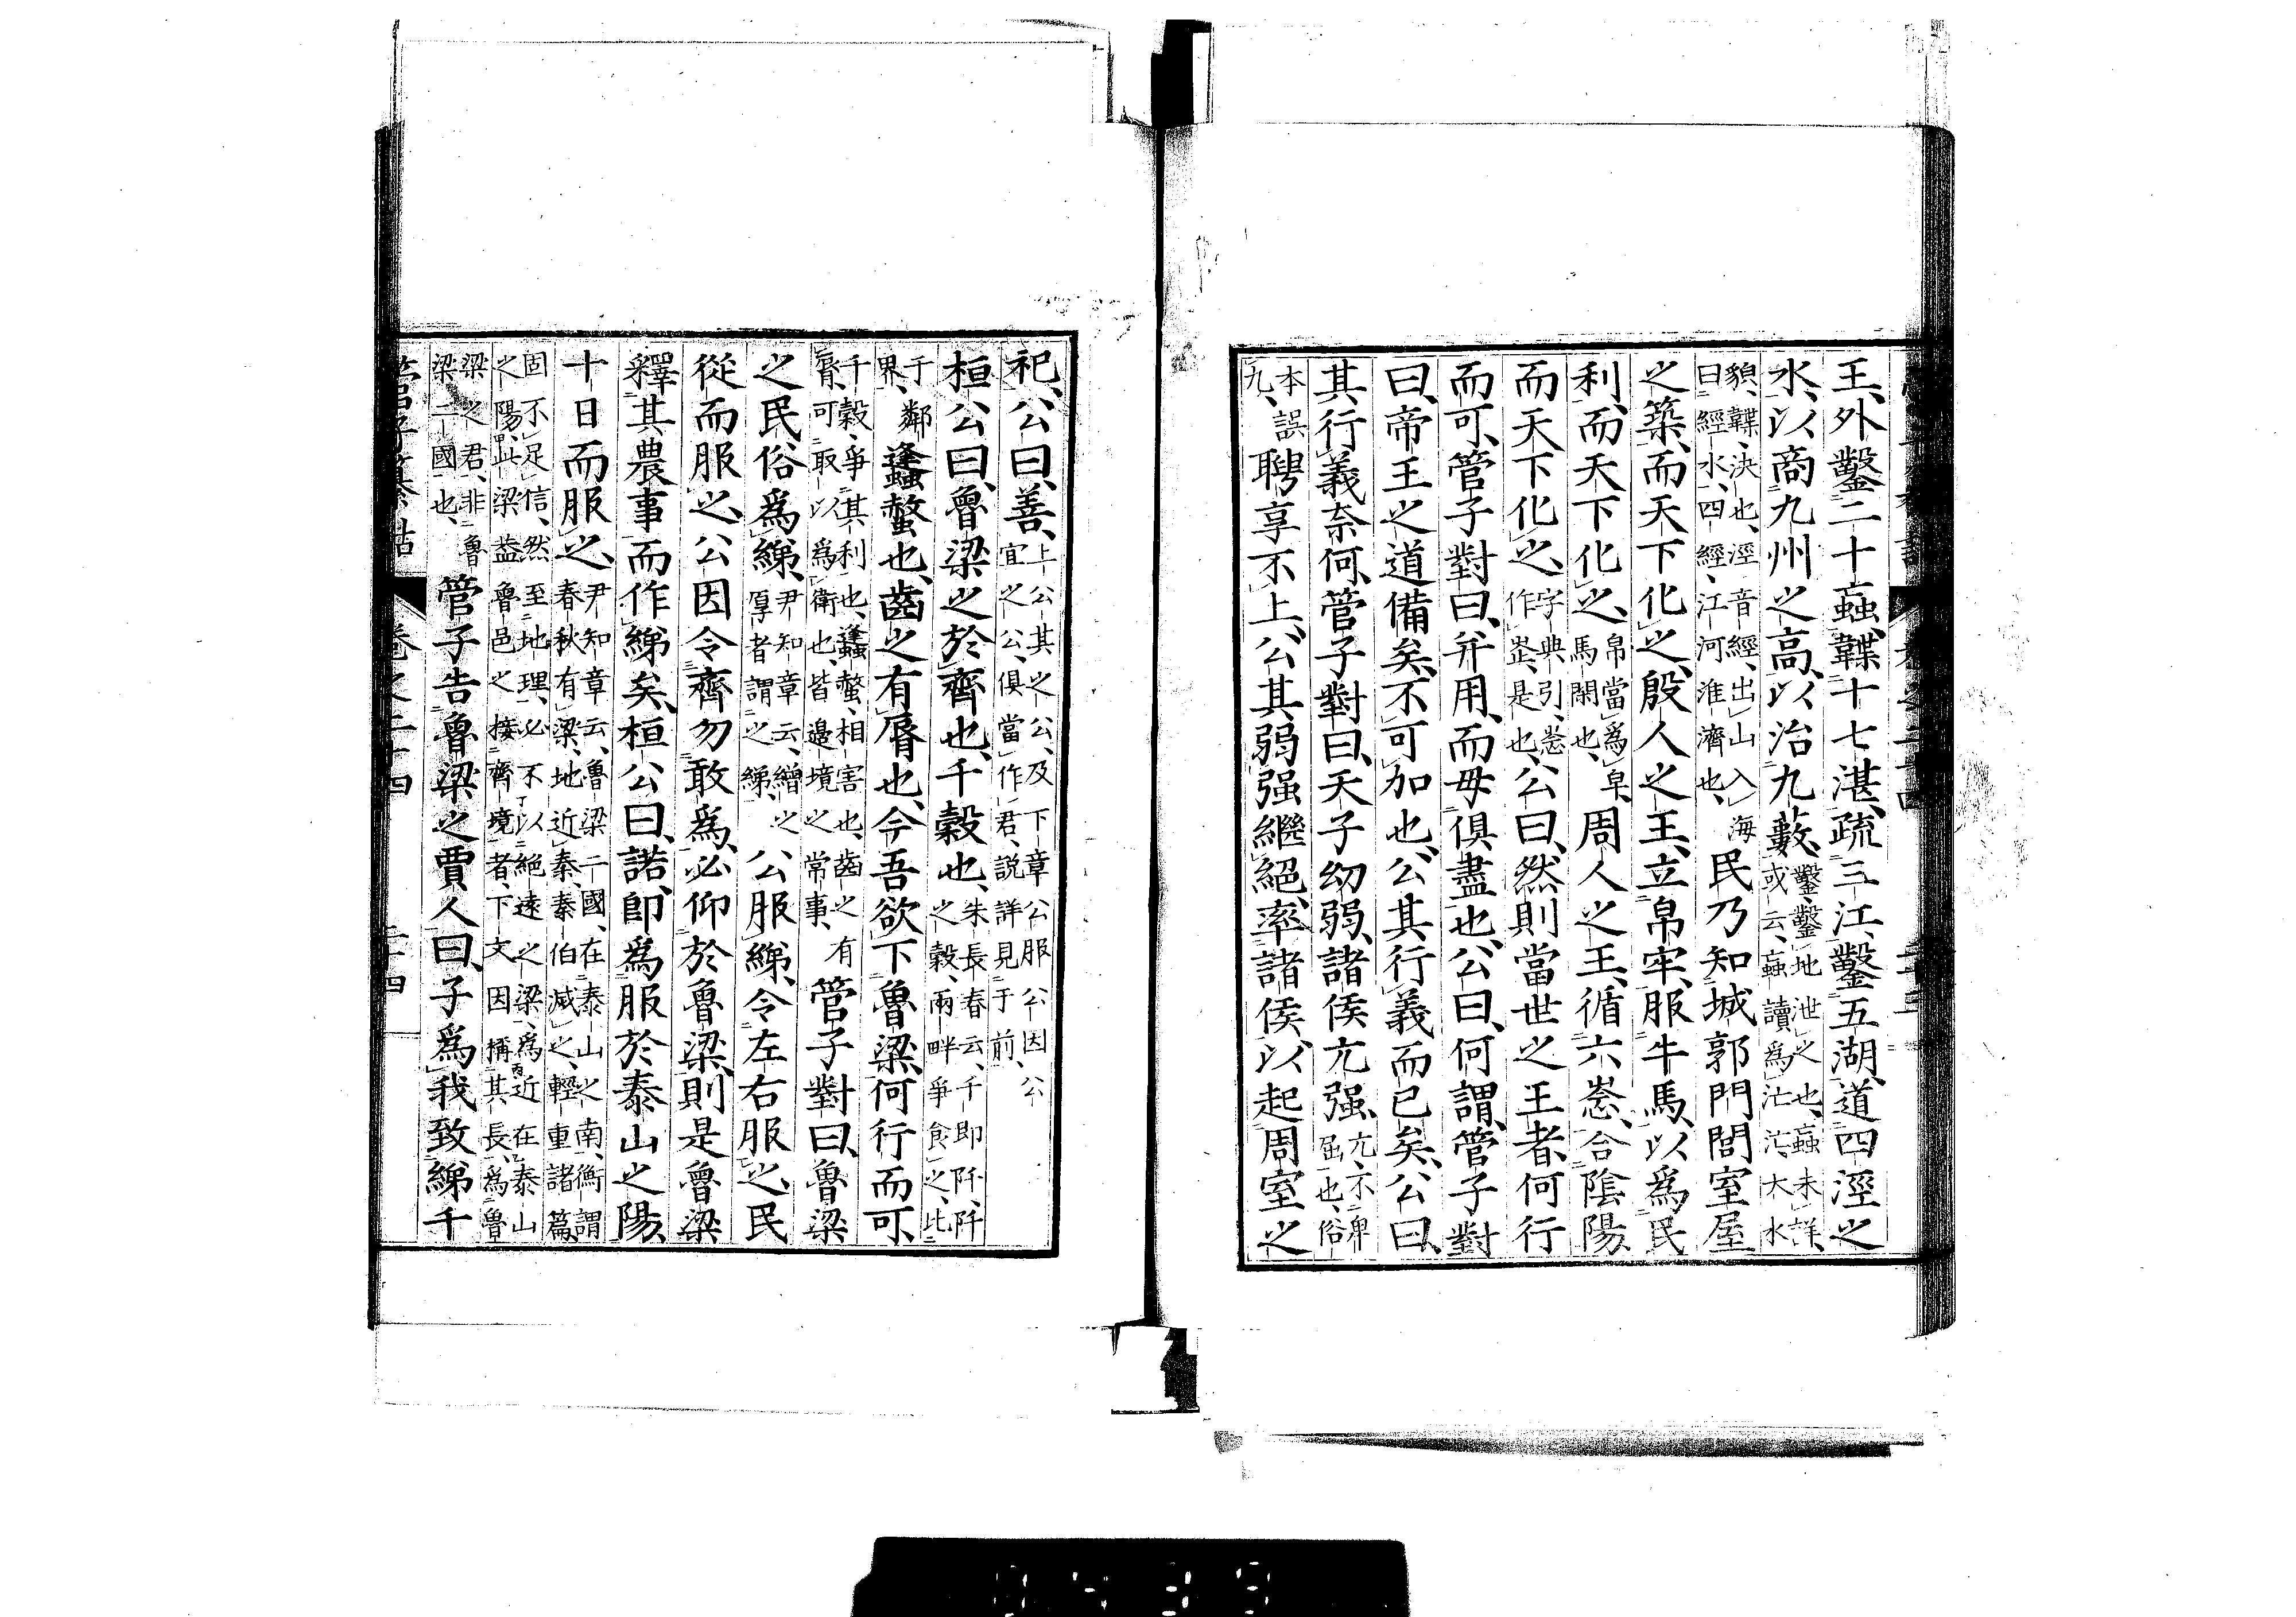 王、外鑿二十䖟、韘十七湛、疏三江、鑿五湖、道四涇之
水、以商九州之高、以治九藪、鑿、鑿地泄之也、䖟未詳、
或云、䖟讀爲茫、茫、大水
貌、韘、決也、涇音經、出山入海
曰經水、四經、江河淮濟也、民乃知城郭門閭室屋
之築、而天下化之、殷人之王、立帛牢、服牛馬、以爲民
利、而天下化之、帛當爲皁、
馬閑也、周人之王、循六𢘟、合陰陽、
而天下化之、字典引、𢘟
作坴、是也、公曰、然則當世之王者、何行
而可、管子對曰、幷用、而毋俱盡也、公曰、何謂、管子對
曰、帝王之道備矣、不可加也、公其行義而已矣、公曰、
其行義奈何、管子對曰、天子幼弱、諸侯亢强、亢、不卑
屈也、俗
本誤
九、聘享不上、公其弱强繼絕、率諸侯、以起周室之
祀、公曰、善、上公其之公、及下章公服公因公
宜之公、俱當作君、說詳見于前、
桓公曰、魯梁之於齊也、千穀也、朱長春云、千即阡、阡
之穀、兩畔爭食之、此
于鄰
界、蠭螫也、齒之有脣也、今吾欲下魯梁、何行而可、
千穀、爭其利也、蠭螫、相害也、齒之有
脣、可取以爲衛也、皆邊境之常事、管子對曰、魯梁
之民俗爲綈、尹知章云、繒之
厚者謂之綈、公服綈、令左右服之、民
從而服之、公因令齊勿敢爲、必仰於魯梁、則是魯梁
釋其農事而作綈矣、桓公曰、諾、卽爲服於泰山之陽、
十日而服之、尹知章云、魯梁二國、在泰山之南、衡謂
春秋有梁、地近秦、秦伯滅之、輕重諸篇、
固不足信、然至地理、必不以絕遠之梁、爲近在泰山
之陽、此梁盖魯邑之接齊境者、下文因稱其長、爲魯
梁之君、非魯
梁二國也、管子告魯梁之賈人曰、子爲我致綈千
管子纂詁 卷之二十四 二十四